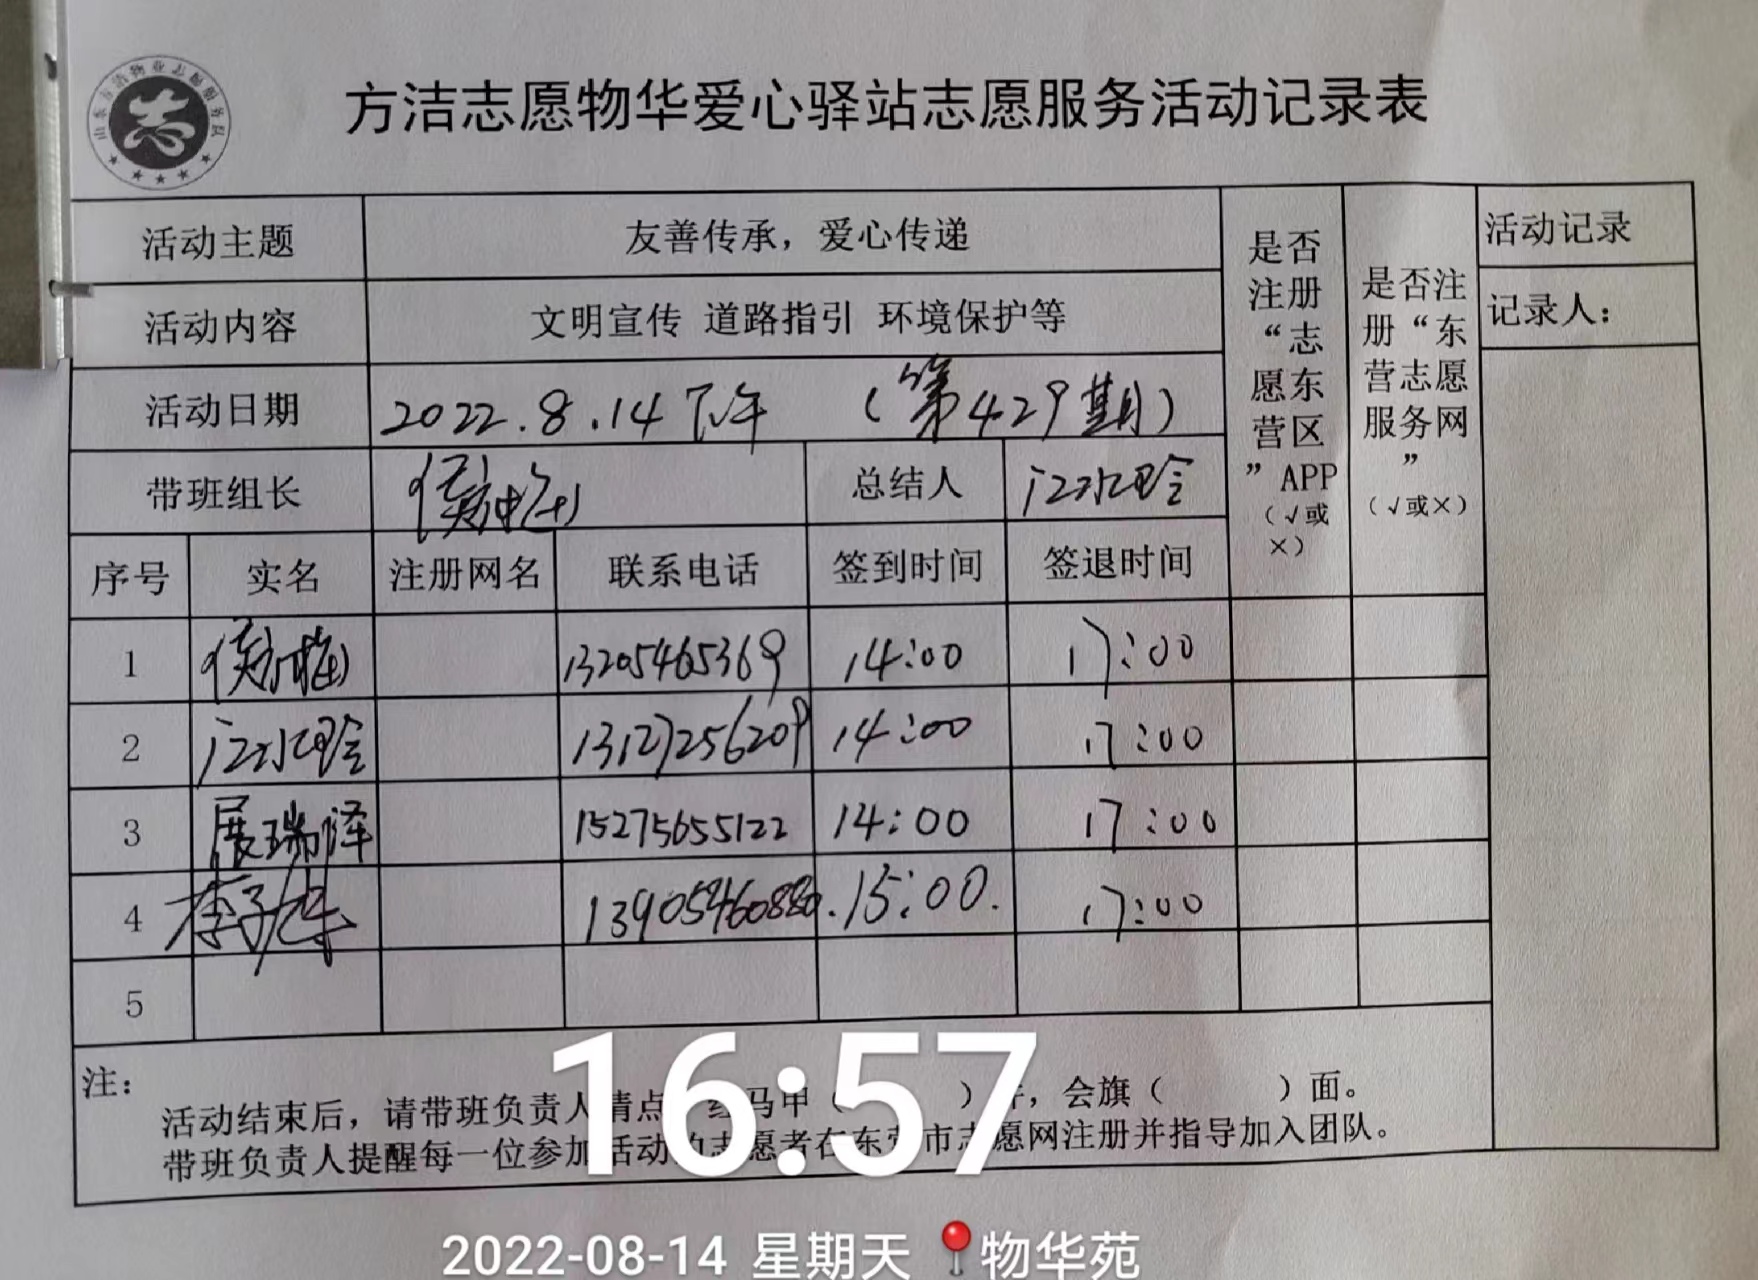 山东方洁物业志愿服务队
志
方洁志愿物华爱心驿站志愿服务活动记录表
活动主题 友善传承，爱心传递
活动内容 文明宣传 道路指引 环境保护等
活动日期 2022.8.14下午 （第429期）
带班组长 总结人
是否注册“志愿东营区”APP（√或×）
是否注册“东营志愿服务网”（√或×）
活动记录
记录人：
序号 实名 注册网名 联系电话 签到时间 签退时间
1 13205465369 14:00 17:00
2 13127256209 14:00 17:00
3 展瑞泽 15275655122 14:00 17:00
4 15:00. 17:00
5
注：
活动结束后，请带班负责人清点 红马甲（ ）件，会旗（ ）面。
带班负责人提醒每一位参加活动的志愿者在东营市志愿网注册并指导加入团队。
16:57
2022-08-14 星期天 物华苑